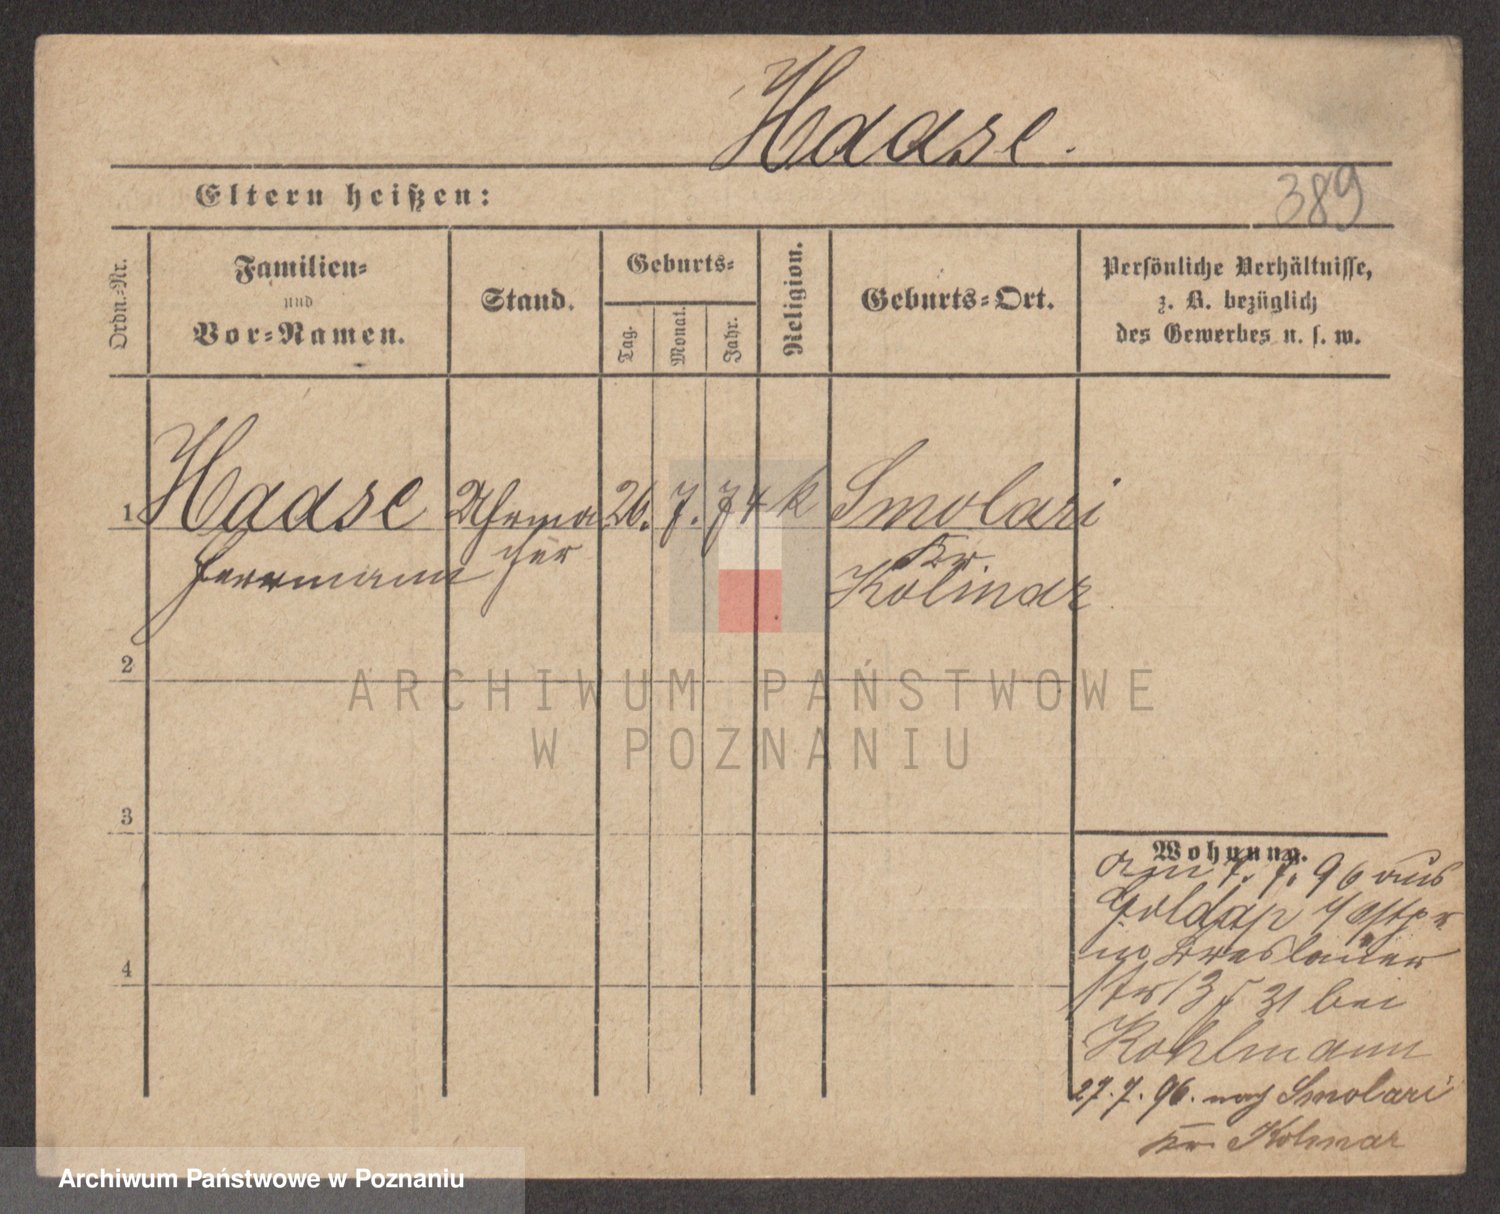 Haase.
Eltern heißen:
389
Ordn.-Nr.
Familien-
und
Vor-Namen.
Stand.
Geburts-
Tag.
Monat.
Jahr.
Religion.
Geburts-Ort.
Persönliche Verhältnisse,
z. B. bezüglich
des Gewerbes u. s. w.
1 Haase Uhrma 26. 7. 74 k Smolari
Herrmann cher Kr
Kolmar
2
ARCHIWUM PAŃSTWOWE
W POZNANIU
3
4
Wohnung.
am 7. 7. 96 aus
Goldap /Ostpr
in Breslauer
str 13 31 bei
Kohlmann
27. 7. 96. nach Smolari
Kr Kolmar
Archiwum Państwowe w Poznaniu